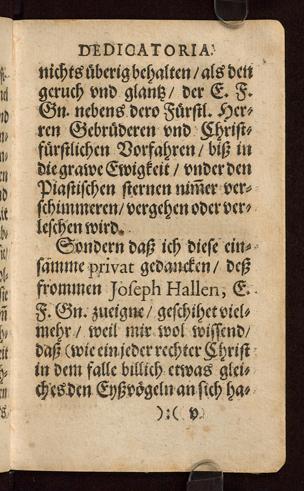 DEDICATORIA.
nichts überig behalten / als den
geruch vnd glantz / der E. F.
Gn. nebens dero Fürstl. Her-
ren Gebrüderen vnd Christ-
fürstlichen Vorfahren / biß in
die grawe Ewigkeit / vnder den
Piastischen sternen nim̃er ver-
schimmeren / vergehen oder ver-
leschen wird.
Sondern daß ich diese ein-
sämme privat gedancken / deß
frommen Joseph Hallen, E.
F. Gn. zueigne / geschihet viel-
mehr / weil mir wol wissend /
daß (wie ein jeder rechter Christ
in dem falle billich etwas glei-
ches den Eyßvögeln an sich ha-
):( v.